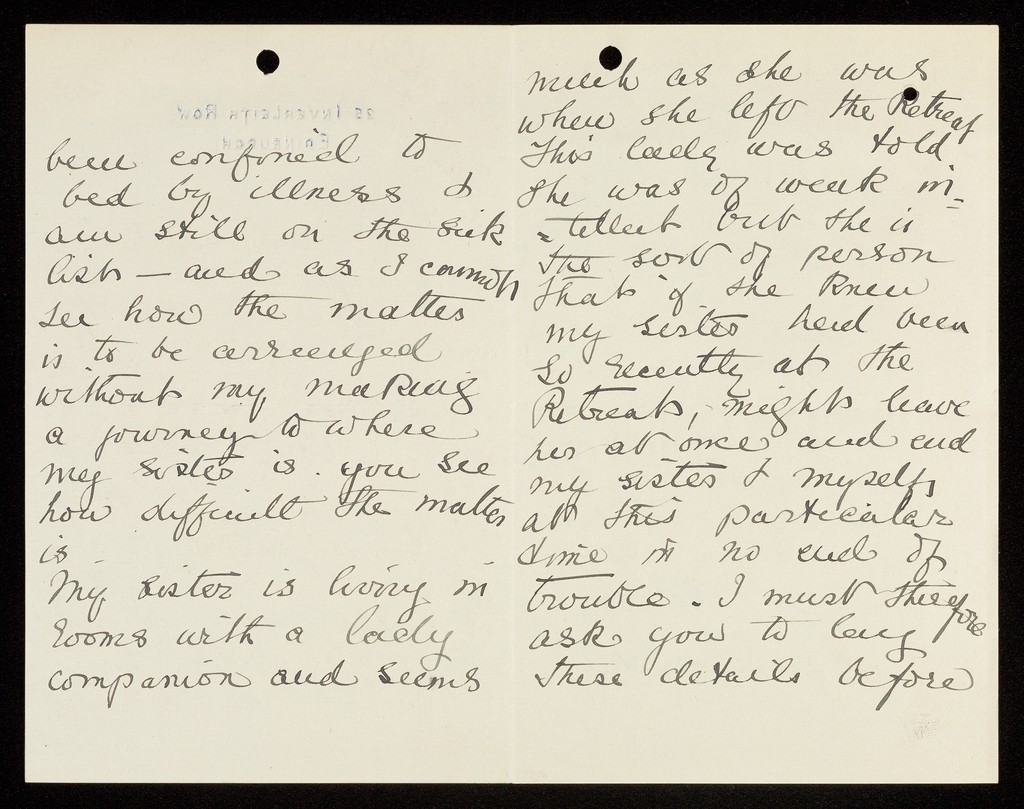 25 INVERLEITH ROW
EDINBURGH
been confined to
bed by illness &
am still on the sick
list – and as I cannot
see how the matter
is to be arranged
without my making
a journey to where
my sister is. you see
how difficult the matter
is
My sister is living in
rooms with a lady
companion and seems
much as she was
when she left the Retreat
This lady was told
she was of weak in=
=tellect but she is
the sort of person
that if she knew
my sister had been
so recently at the
Retreat, might leave
her at once and end
my sister & myself,
at this particular
time in no end of
trouble. I must therefore
ask you to lay
these details before